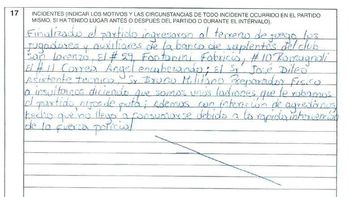 17 INCIDENTES (INDICAR LOS MOTIVOS Y LAS CIRCUNSTANCIAS DE TODO INCIDENTE OCURRIDO EN EL PARTIDO
MISMO, SI HA TENIDO LUGAR ANTES O DESPUES DEL PARTIDO O DURANTE EL INTERVALO).
Finalizado el partido ingresaron al terreno de juego los
jugadores y auxiliares de la banca de suplentes del club
San Lorenzo, El # 59, Fontanini Fabricio, # 10 Romagnoli
El # 11 Correa Angel encuberando; El Sr José Dileo
Asistente técnico y Sr Bruno Militano Preparador Físico
a insultarnos diciendo que somos unos ladrones, que le robamos
el partido, hijos de puta; Ademas con intención de agredirnos
hecho que no llego a consumarse debido a la rapida intervención
de la fuerza policial